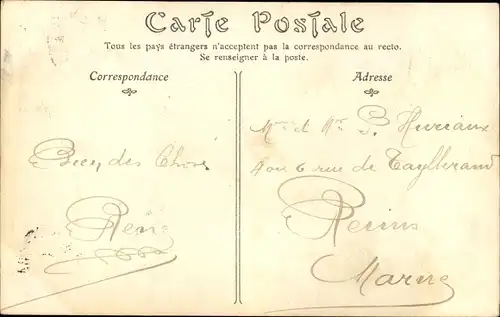 Carte Postale
Tous les pays étrangers n'acceptent pas la correspondance au recto.
Se renseigner à la poste.
Correspondance
Bien des Choses
René
Adresse
Mme et Mr P. Huriaux
6 rue de Tayllerand
Reims
Marne